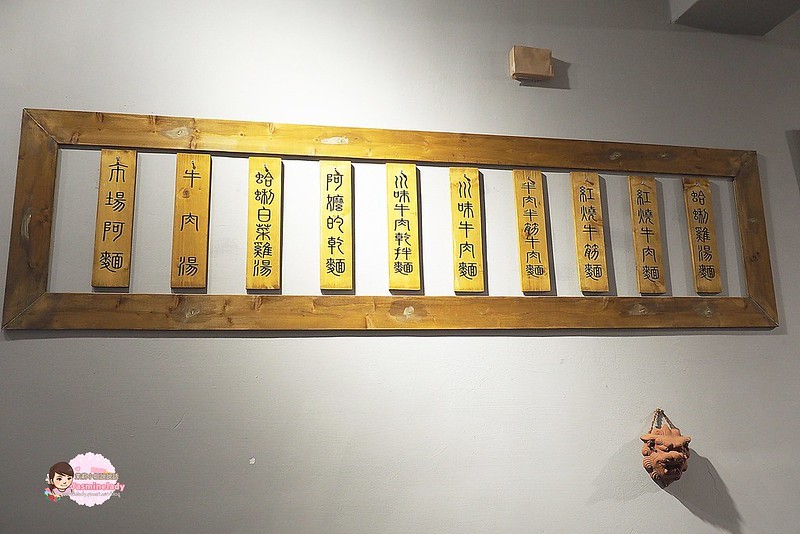 蛤蜊雞湯麵
紅燒牛肉麵
紅燒牛筋麵
半肉半筋牛肉麵
川味牛肉麵
川味牛肉乾拌麵
阿嬤的乾麵
蛤蜊白菜雞湯
牛肉湯
市場阿麵
Jasminelady